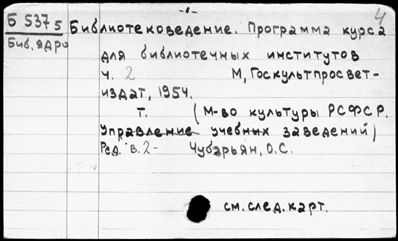 -1-
4
Б 5375
Библиотековедение. Программа курса
Биб. ядро
для библиотечных институтов
ч. 2 М, Госкультпросвет-
издат, 1954.
Т. (М-во культуры РСФСР.
Управление учебных заведений)
Ред. в. 2- Чубарьян, О.С.
см. след. карт.